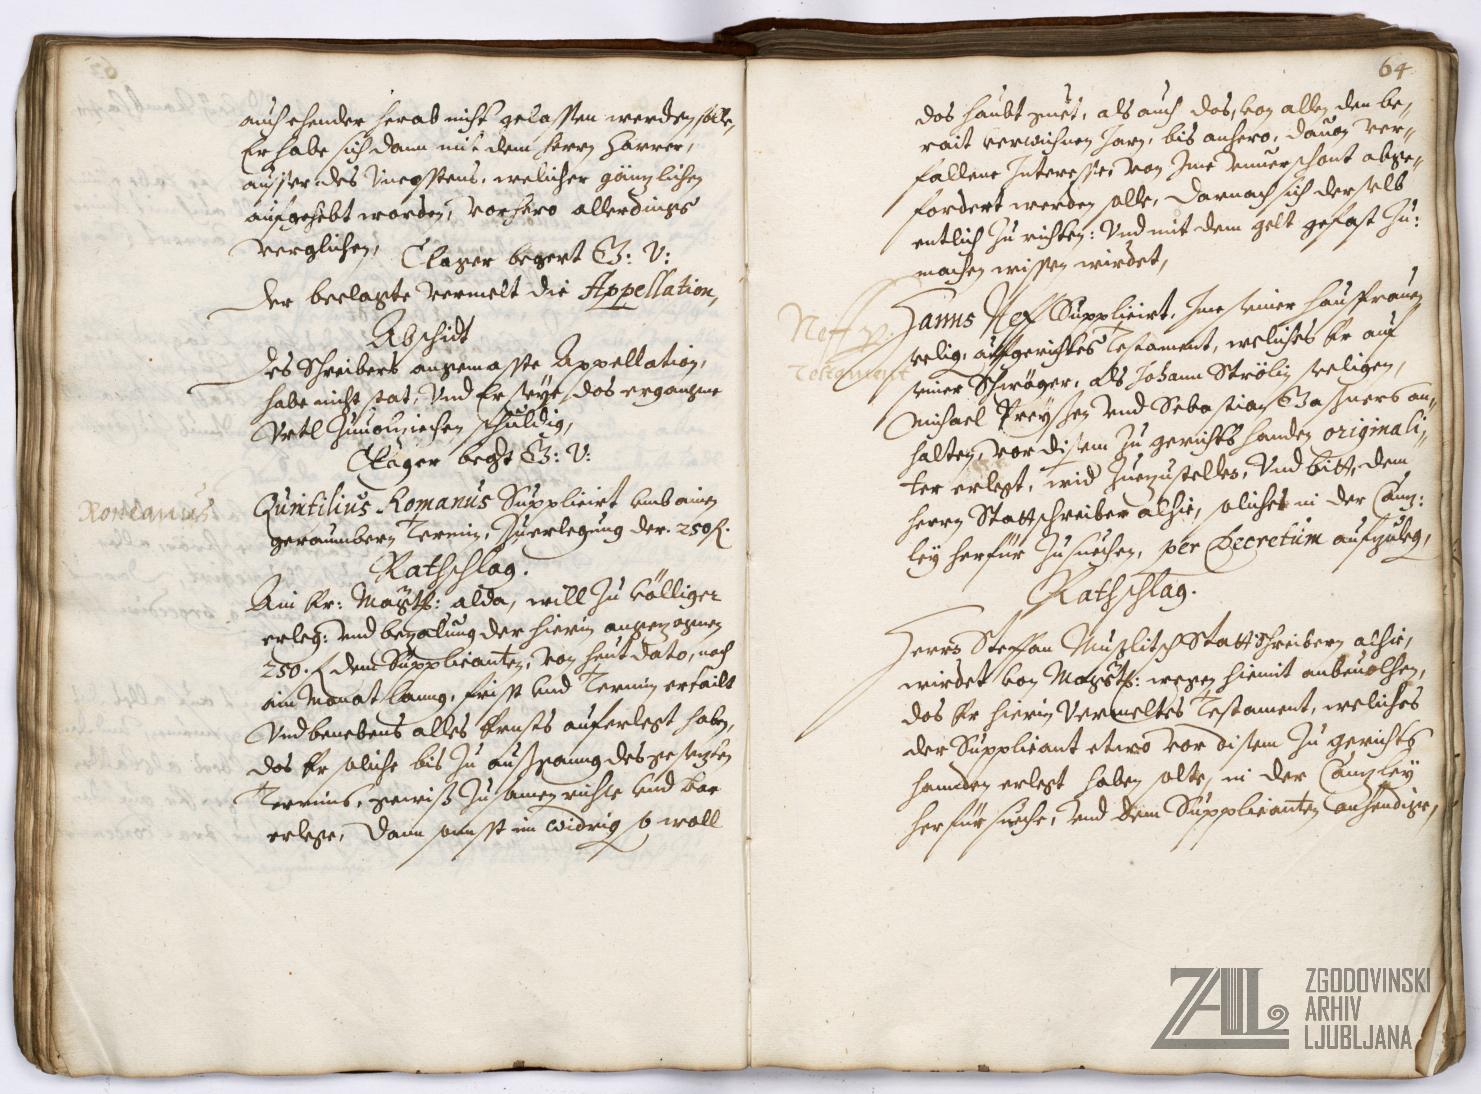 auch ehender herab nicht gelassen werden solle,
Er habe sich dann mit dem herrn Harrer,
ausser des Uncosstens, welicher gänzlichen
aufgehebt worden, vorhero allerdings
verglichen, Clager begert G: U:
Der beclagte vermelt die Appellation,
Abschidt
Des Schreibers angemasste Appellation,
habe nicht stat, Und Er seye, das ergangne
Urtl zuuolziechen schuldig,
Clager begst G: U:
Romanus
Quintilius Romanus Supplicirt umb ainen
geraumbern Termin, zuerlegung der 250 f.
Rathschlag.
Ain Er: Magst: alda, will zu völliger
erleg: und bezalung der hierin angezognen
250. f dem Supplicanten, von heut dato, noch
ein Monat lanng, frist und Termin erthailt
Und benebens alles Ernsts auferlegt haben,
das Er soliche bis zu ausgang des gesezten
Termins, gewiß zusamen richte und bar
erlege, Dann sonst im widrig so woll
64
das haubt guet, als auch das, von allen den be-
rait verwichnen Jarn, bis anhero, dauon ver-
fallene Interesse, von Ime unuerschont abge-
fordert werden solle, Darnach sich derselb
entlich zu richten: Und mit dem gelt gefast zu:
machen wissen wirdet,
Neff p.
Testament
Hanns Nef Supplicirt, Ime seiner hausfrauen
selig, aufgerichtes Testament, weliches Er auf
seiner Schwäger, als Johann Strölin seeligen,
Michael Preyssen und Sebastian Gastners an-
halten, vor disem zu gerichts handen originali-
ter erlegt, wid zuezustellen, Und bitt, dem
herrn Stattschreiber alhie, soliches in der Canz:
ley herfür zusuechen, per Decretum aufzuleg,
Rathschlag.
Herrn Steffan Stattschreibern alhie,
wirdet von Magst: wegen hiemit anbeuolhen,
das Er hierin Vermeltes Testament, weliches
der Supplicant etwo vor disem zu gerichts
handen erlegt haben solte, in der Canzley
herfür sueche, und dem Supplicanten anhendige,
ZAL ZGODOVINSKI
ARHIV
LJUBLJANA